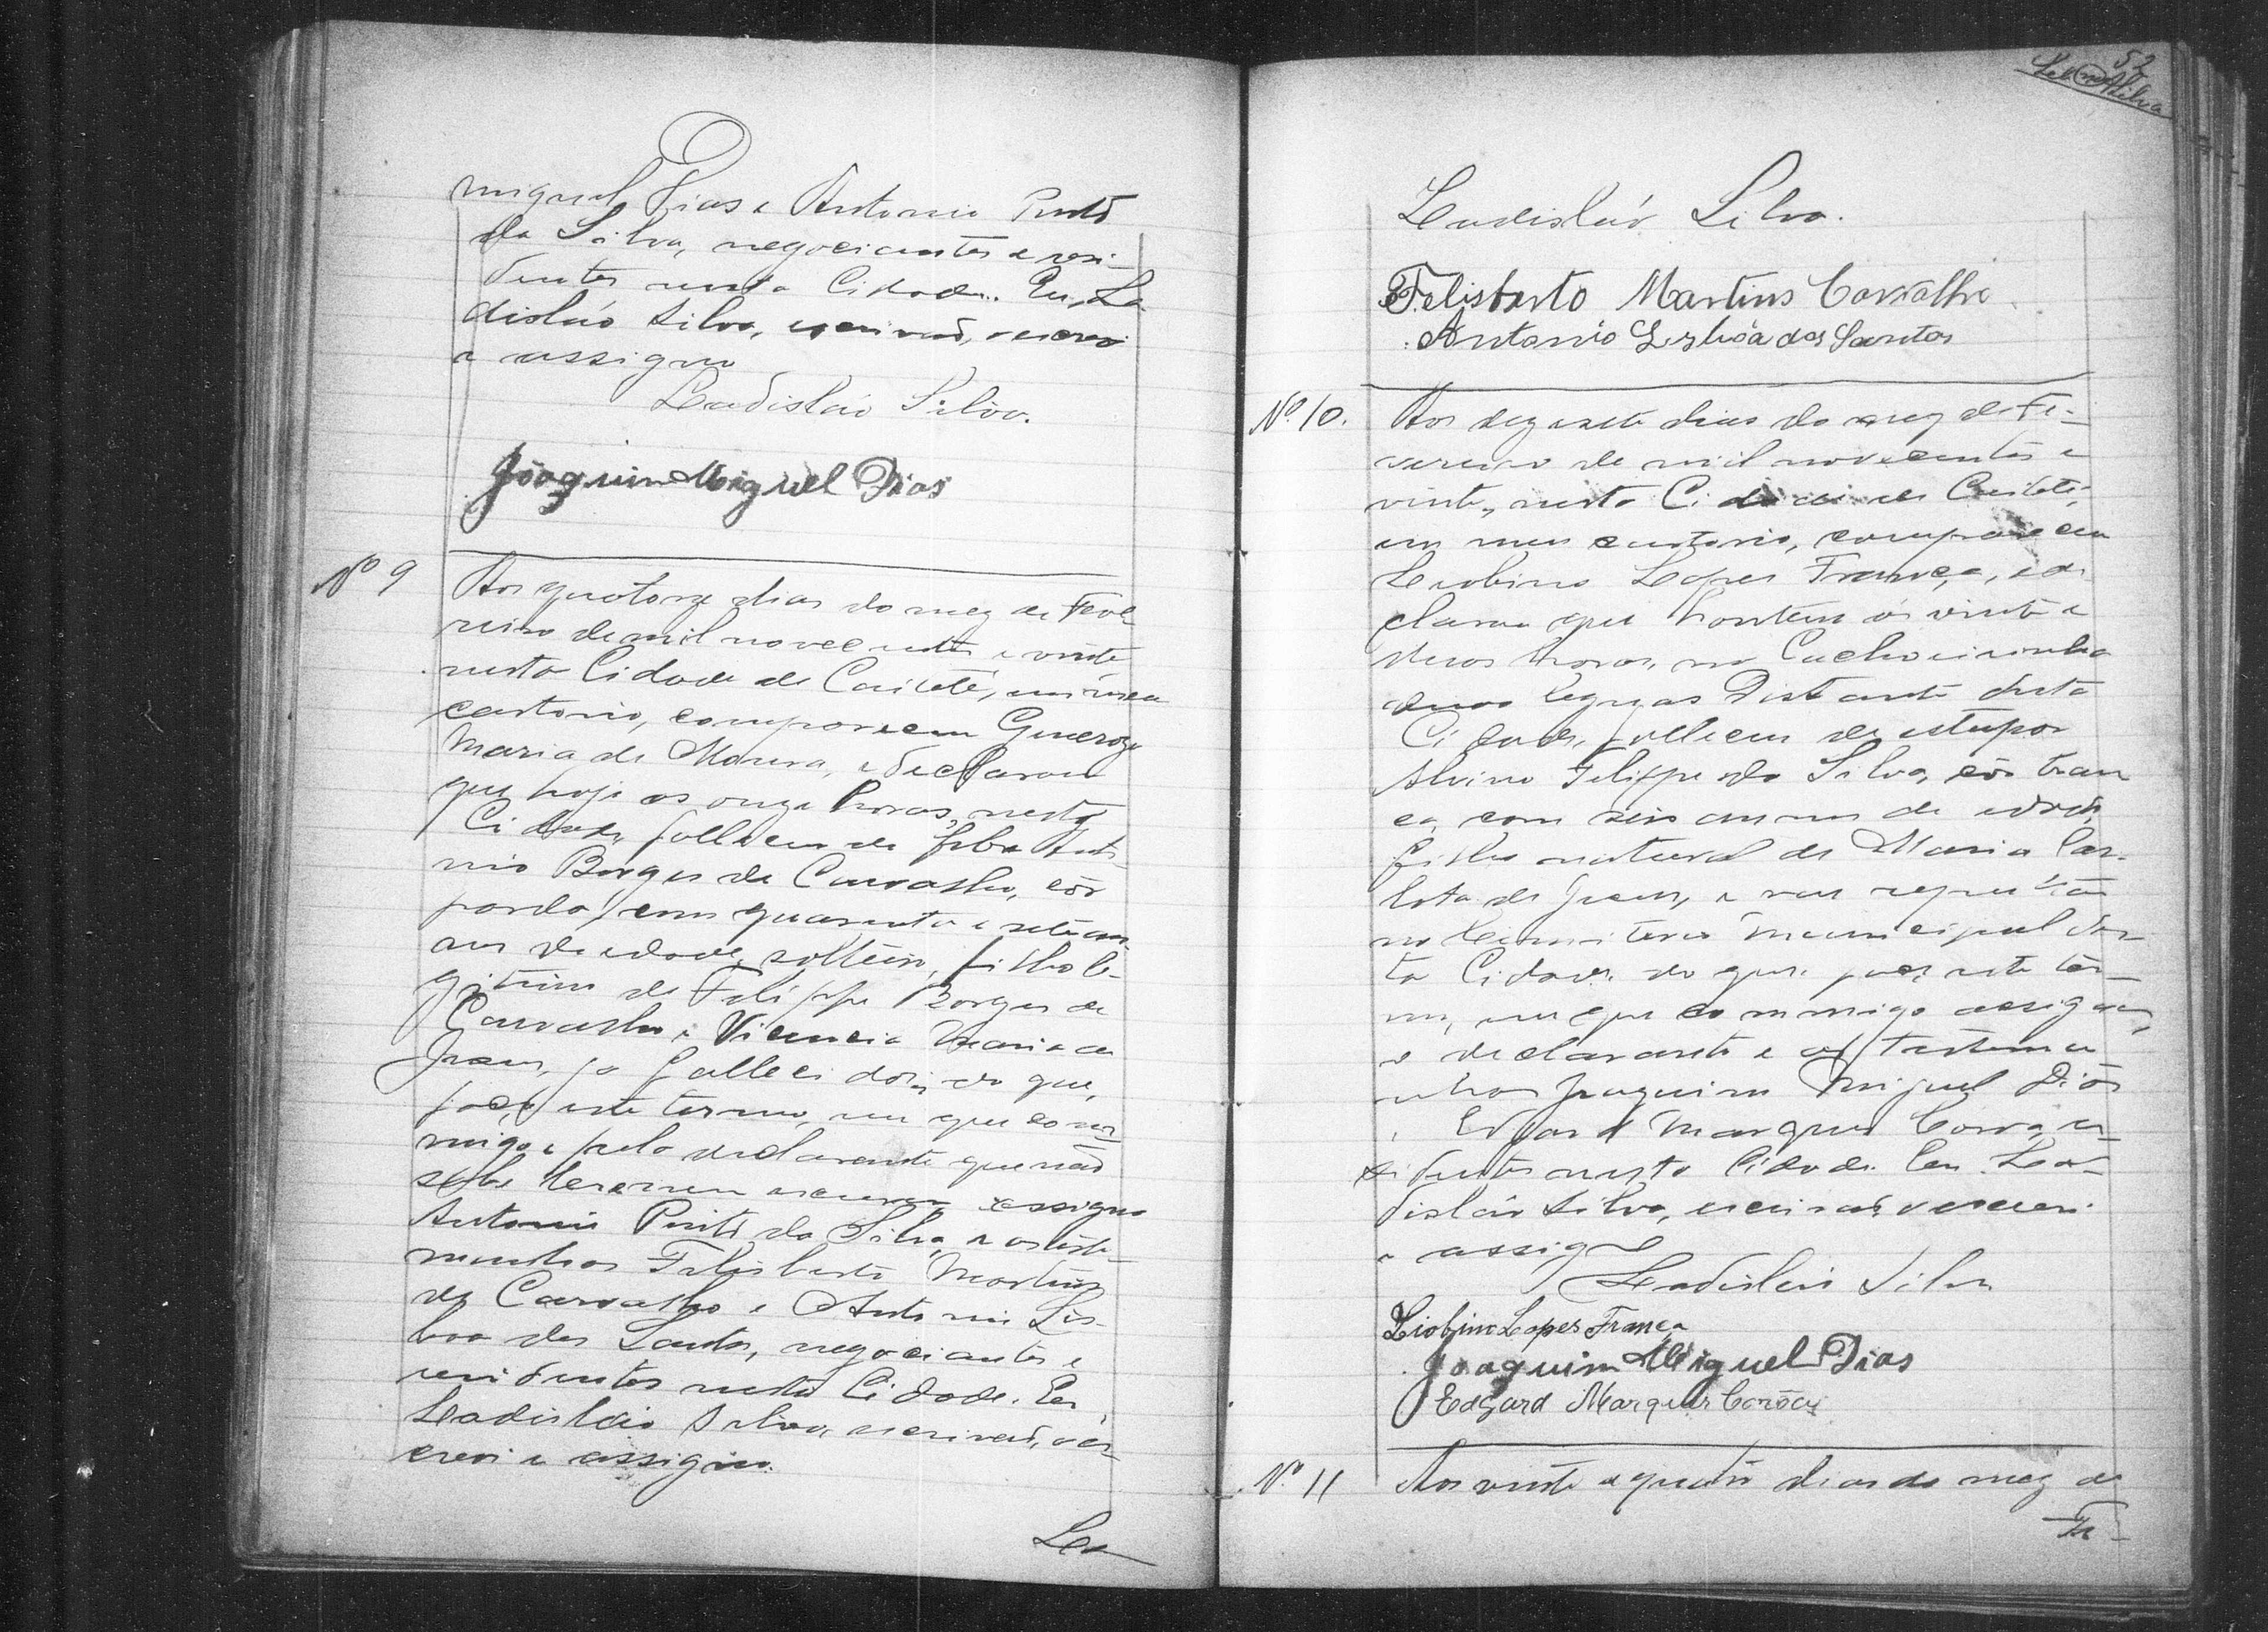 miguel Dias e Antonio Pinto
da Silva, negociantes e resi-
dentes nesta Cidade. Eu, La-
disláo Silva, escrivão, escrevi
e assigno
Ladisláo Silva.
Joaquim Miguel Dias
Nº 9
Aos quatorze dias do mez de Feve
reiro de mil novecentos e vinte
nesta Cidade de Caiteté, em meu
cartorio, compareceu Generoza
Maria de Moura, e declarou
que hoje as onze horas, nesta
Cidade falleceu de febre Anto
nio Borges de Carvalho, côr
parda, com quarenta e sete an-
nos de edade, solteiro, filho le-
gitimo de Felippe Borges de
Carvalho e Vicencia Maria de
Jesus, ja fallecidos, do que,
faço este termo, em que com-
migo e pelo declarante que não
sabe ler e nem escrever assigna
Antonio Pinto da Silva, e as teste-
munhas Felisberto Martins
de Carvalho e Antonio Lis-
boa dos Santos, negociantes e
residentes nesta Cidade. Eu,
Ladisláo Silva, escrivão, es-
crevi e assigno.
La
52
Silva
Ladisláo Silva.
Felisberto Martins Carvalho
Antonio Lisbôa dos Santos
Nº 10.
Aos dezesete dias do mez de Fe-
vereiro de mil novecentos e
vinte, nesta Cidade de Caiteté,
em meu cartorio, compareceu
Leobino Lopes França, e de-
clarou que hontem ás vinte e
duas horas, na Cachoeirinha
duas leguas distante desta
Cidade, falleceu de estupor
Alvino Felippe da Silva, côr bran
ca, com seis annos de edade,
filho natural de Maria Car-
lota de Jesus, e vae sepultar
no Cemiterio Municipal des-
ta Cidade, do que, faço este ter-
mo, em que commigo assignam
o declarante e as testemu-
nhas Joaquim Miguel Dias
e Edgard Marques Coroa, re-
sidentes nesta Cidade. Eu La-
disláo Silva, escrivão, escrevi
e assigno
Ladisláo Silva
Liobino Lopes França
Joaquim Miguel Dias
Edgard Marques
Nº 11
Aos vinte e quatro dias do mez de
Fe-